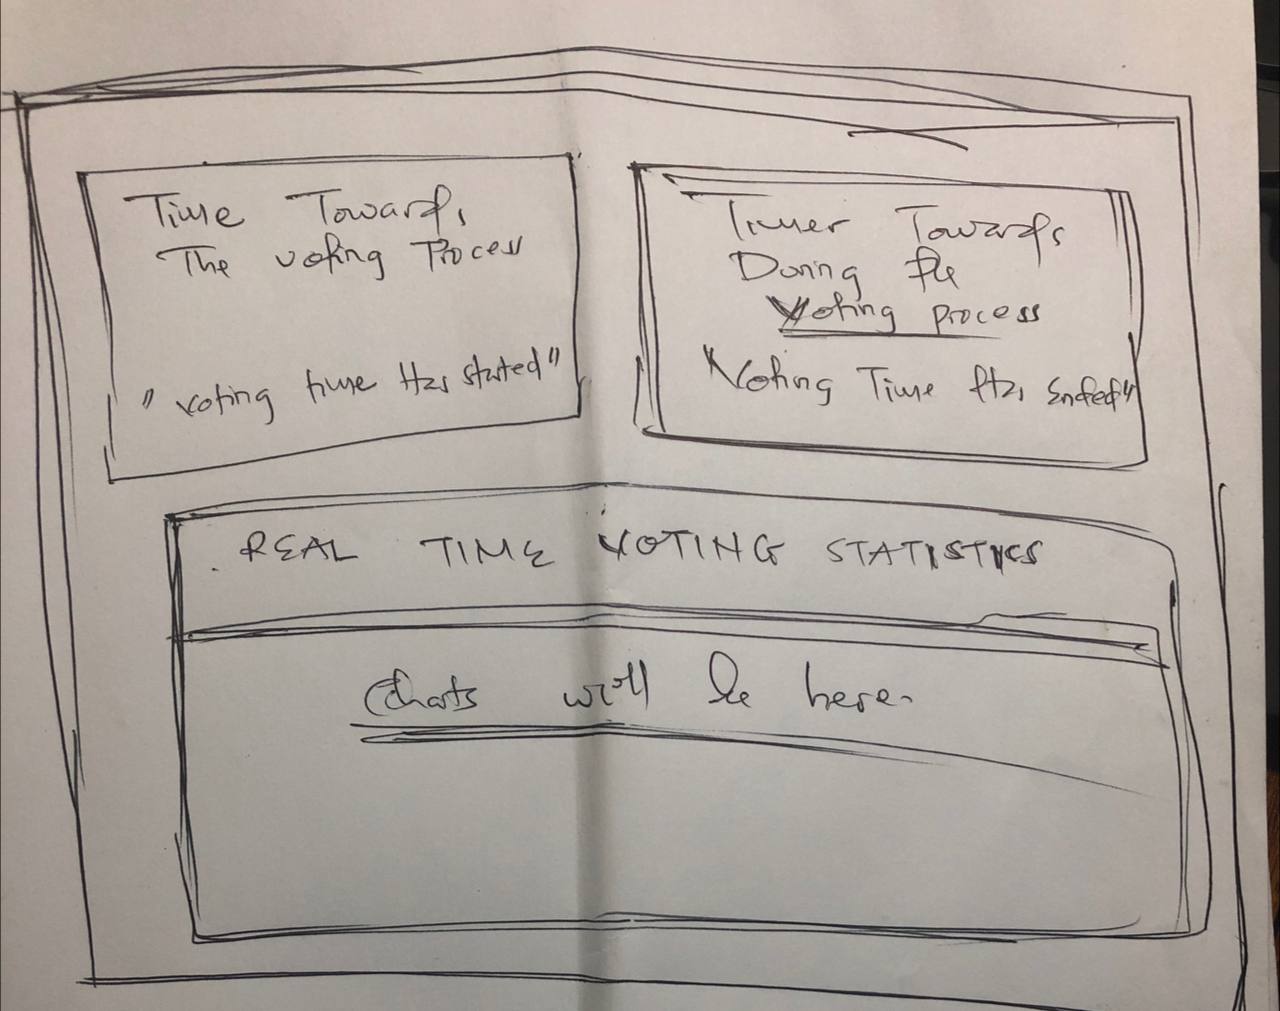 Time Towards
The voting Process
"voting time Has started"
Timer Towards
During the
Voting process
"Voting Time Has Ended"
REAL TIME VOTING STATISTICS
Charts will be here.